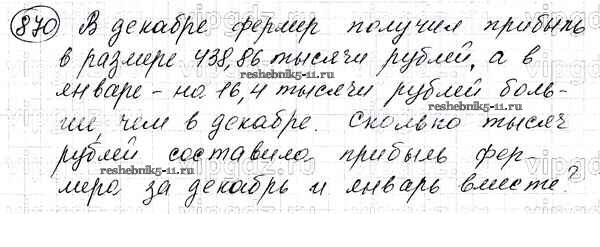 870 В декабре фермер получил прибыль
в размере 438,86 тысячи рублей, а в
reshebnik5-11.ru
январе - на 16,4 тысячи рублей боль-
reshebnik5-11.ru
ши, чем в декабре. Сколько тысяч
рублей составила прибыль фер-
reshebnik5-11.ru
мера за декабрь и январь вместе?